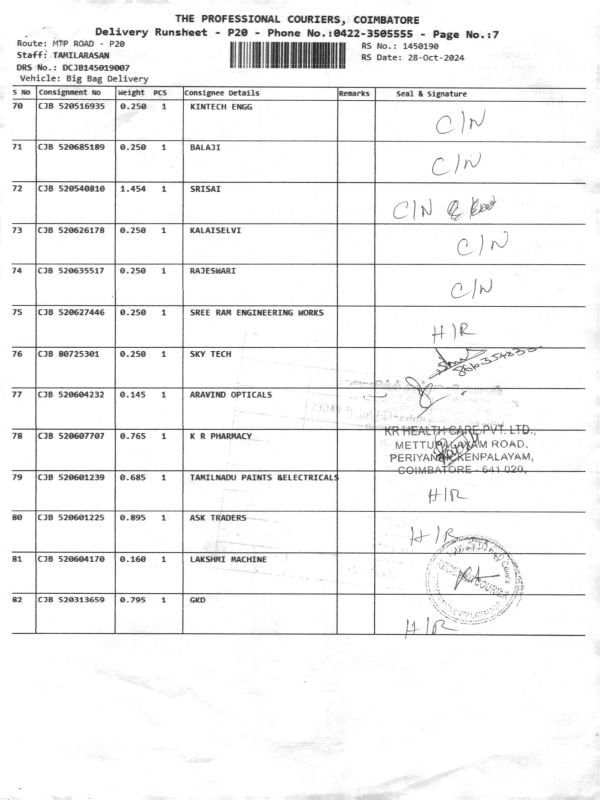 THE PROFESSIONAL COURIERS, COIMBATORE
Delivery Runsheet - P20 - Phone No.:0422-3505555 - Page No.:7
Route: MTP ROAD - P20 RS No.: 1450190
Staff: TAMILARASAN RS Date: 28-Oct-2024
DRS No.: DCJB145019007
Vehicle: Big Bag Delivery
S No Consignment No Weight PCS Consignee Details Remarks Seal & Signature
70 CJB 520516935 0.250 1 KINTECH ENGG
C/N
71 CJB 520685189 0.250 1 BALAJI
C/N
72 CJB 520540810 1.454 1 SRISAI
C/N
73 CJB 520626178 0.250 1 KALAISELVI
C/N
74 CJB 520635517 0.250 1 RAJESWARI
C/N
75 CJB 520627446 0.250 1 SREE RAM ENGINEERING WORKS
H/R
76 CJB 80725301 0.250 1 SKY TECH
77 CJB 520604232 0.145 1 ARAVIND OPTICALS
78 CJB 520607707 0.765 1 K R PHARMACY
KR HEALTH CARE PVT. LTD.,
METTUPALAYAM ROAD,
PERIYANAICKENPALAYAM,
COIMBATORE - 641 020.
79 CJB 520601239 0.685 1 TAMILNADU PAINTS &ELECTRICALS
H/R
80 CJB 520601225 0.895 1 ASK TRADERS
H/R
81 CJB 520604170 0.160 1 LAKSHMI MACHINE
COURIER
82 CJB 520313659 0.795 1 GKD
H/R